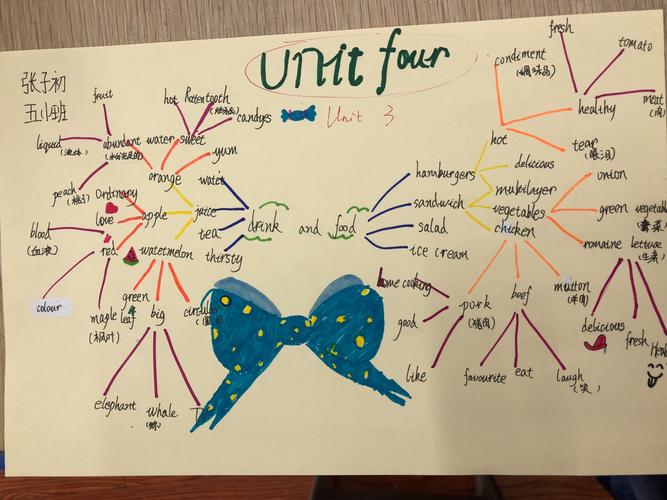 unit four
Unit 3
张子初
五小班
fruit
hot
Rottentooth
candyes
liquid
abundant
water
sweet
yum
peach
orange
water
Ordinary
love
apple
juice
tea
thirsty
drink
and
food
blood
(血液)
red
watetmelon
colour
maple leaf
(枫叶)
green
big
elephant
whale
hamburgers
sandwich
salad
ice cream
hot
condiment
(调味品)
tear
(眼泪)
healthy
fresh
tomato
meat
(肉)
delicious
multilayer
vegetables
onion
green
romaine
lettuce
(生菜)
delicious
fresh
chicken
pork
(猪肉)
home cooking
good
like
beef
favourite
eat
laugh
(笑)
mutton
(羊肉)